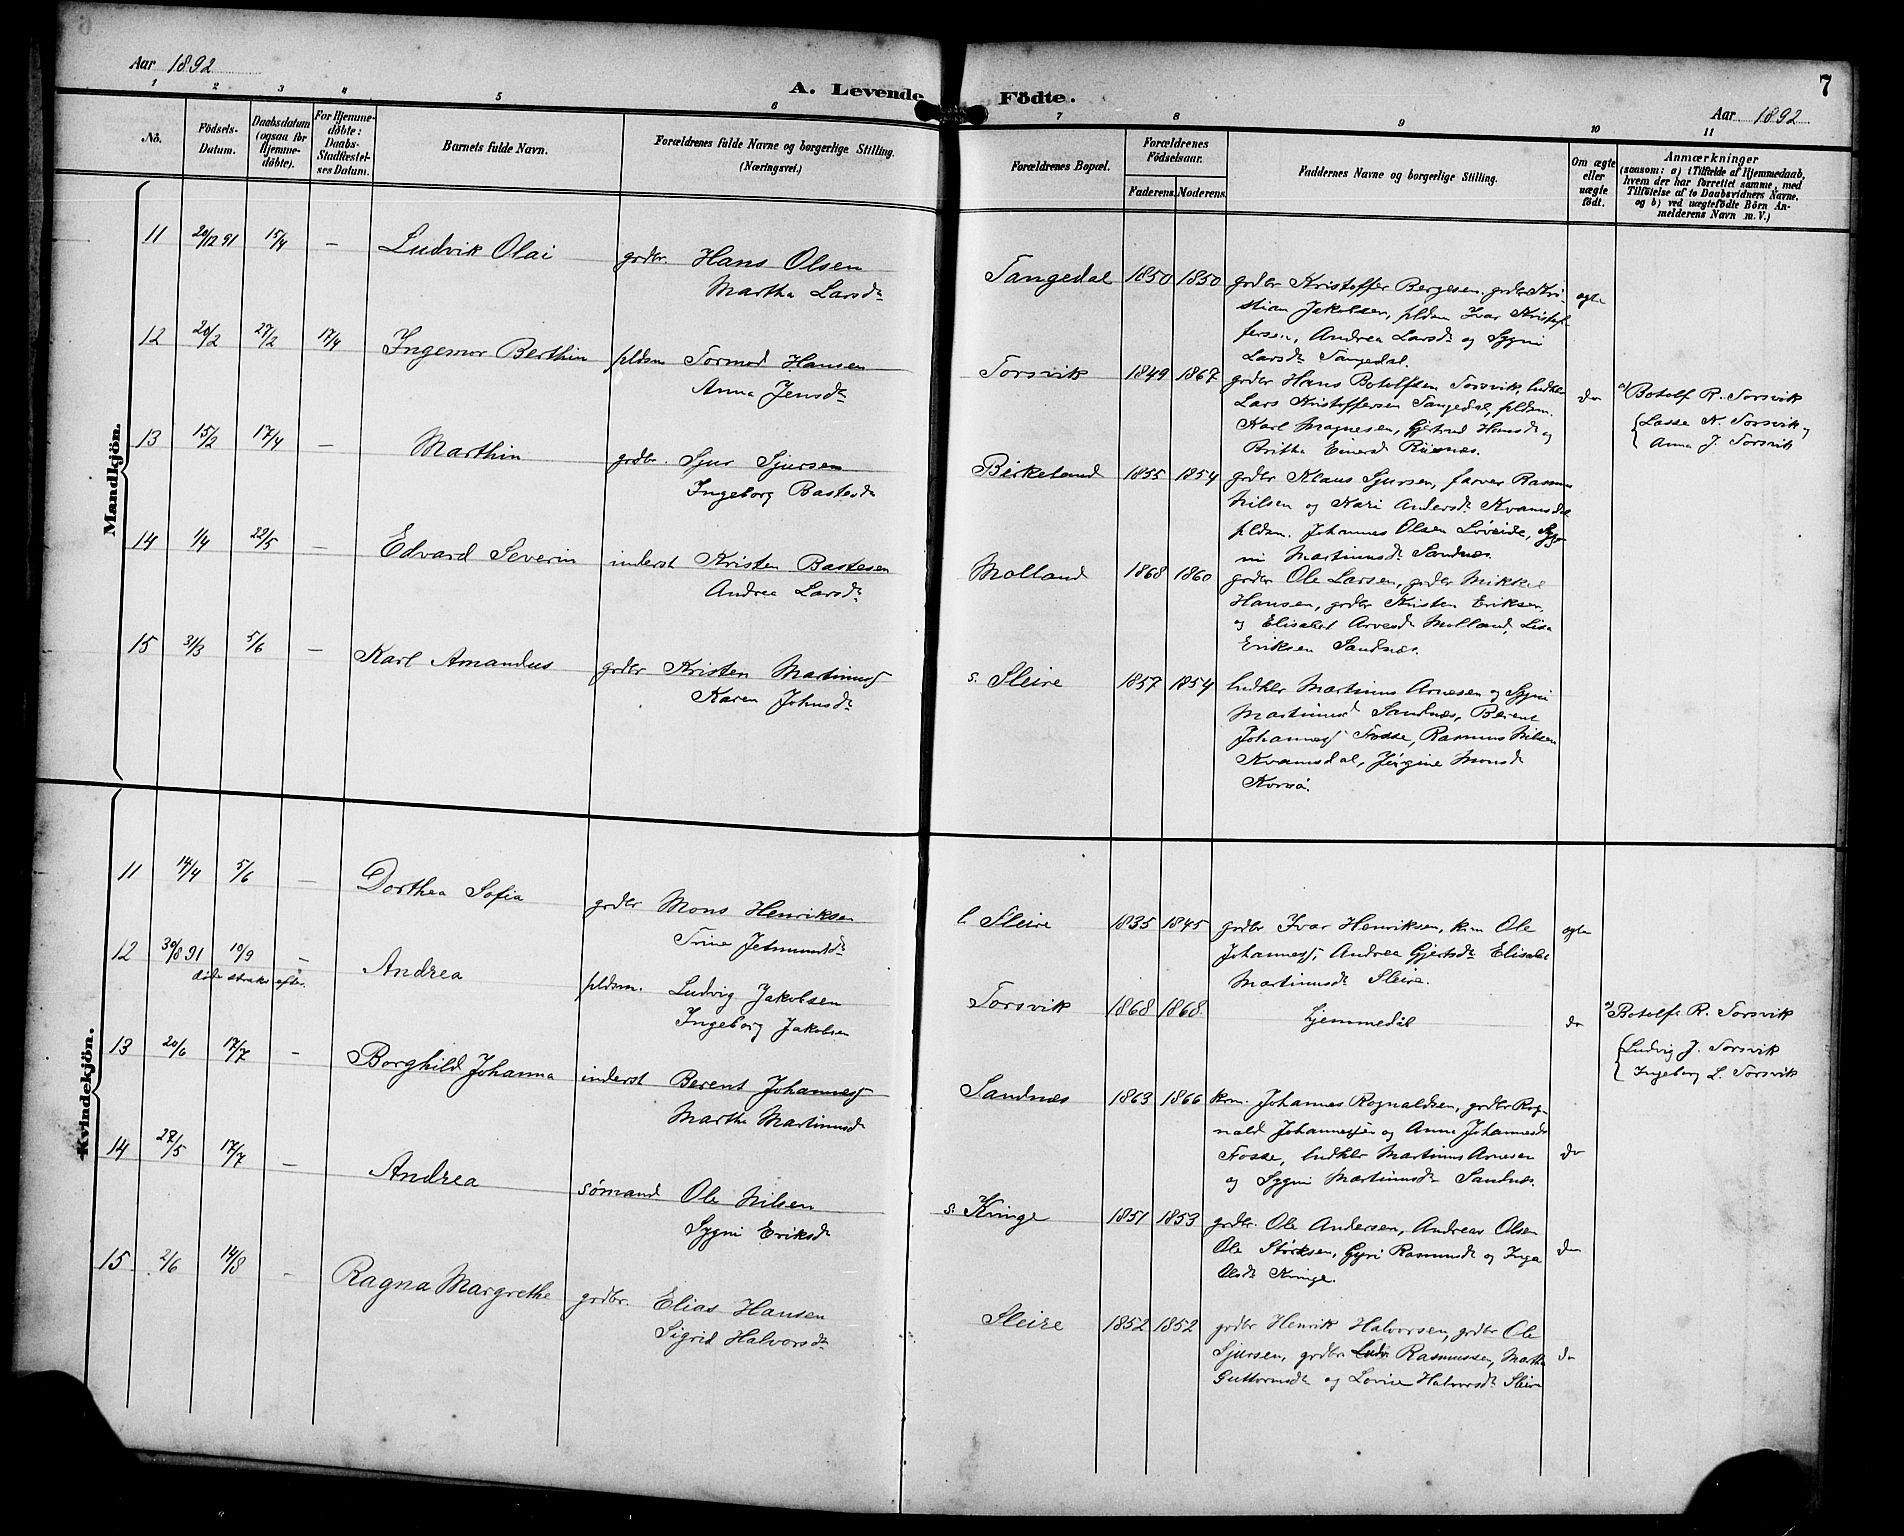 Aar 1892
A. Levende Födte.
7
Aar 1892
1 2 3 4 5 6 7 8 9 10 11
Nö.
Födsels-
Datum.
Daabsdatum
(ogsaa for
Hjemme-
döbte).
For Hjemme-
döbte:
Daabs-
Stadfæstel-
ses Datum.
Barnets fulde Navn.
Forældrenes fulde Navne og borgerlige Stilling.
(Næringsvei.)
Forældrenes Bopæl.
Forældrenes
Födselsaar.
Faderens. Moderens.
Faddernes Navne og borgerlige Stilling.
Om ægte
eller
uægte
födt.
Anmærkninger
(saasom: a) i Tilfælde af Hjemmedaab,
hvem der har forrettet samme, med
Tilföielse af to Daabsvidners Navne.
og b) ved uægtefödte Börn An-
melderens Navn m. V.)
Mandkjön.
11 20/12 91 15/4 — Ludvik Olai grdbr. Hans Olsen
Martha Larsdr
Tangedal 1850 1850 grdbr Kristoffer Bergesen, grdbr Kri-
stian Jakobsen, pldsm Ivar Kristof-
fersen, Andrea Larsdr og Sygni
Larsdr Tangedal.
ægte
12 20/2 27/2 17/4 Ingemor Berthin pldsm Tormod Hansen
Anna Jensdr
Torsvik 1849 1867 grdbr Hans Botolfsen Torsvik, Undklr
Lars Kristoffersen Tangedal, pldsm.
Karl Magnesen, Gjertrud Hansdr og
Britha Einersd Risnæs.
do
a) Botolf R. Torsvik
Lasse N. Torsvik og
Anna J. Torsvik
13 15/2 17/4 — Marthin grdbr. Sjur Sjursen
Ingeborg Bastesdr
Birkeland 1855 1854 grdbr Klaus Sjursen, farver Rasmus
Nilsen og Kari Andersdr Kvamsdal
pldsm. Johannes Olsen Løveide, Syg-
ni Martinusdr Sandnæs.
14 1/4 22/5 — Edvard Severin inderst Kristen Bastesen
Andrea Larsdr
Molland 1868 1860 grdbr Ole Larsen, grdbr Mikkel
Hansen, grdbr Kristen Eriksen,
og Elisabet Arvesdr Molland, Lisa
Eriksen Sandnæs.
15 31/3 5/6 — Karl Amandus grdbr Kristen Martinus
Karen Johnsdr
s. Sleire 1857 1854 Undklr Martinus Arnesen og Sygni
Martinusd Sandnæs, Berent
Johannes Fosse, Rasmus Nilsen
Kvamsdal, Jørgine Monsdr
Korsø.
Kvindekjön.
11 14/4 5/6 — Dorthea Sofia grdbr Mons Henriksen
Trine Jetmundsdr
l Sleire 1835 1845 grdbr Ivar Henriksen, km Ole
Johannes, Andrea Gjertsdr Elisabet
Martinusdr Sleire.
ægte
12 30/8 91 10/9 — Andrea pldsm. Ludvig Jakobsen
døde straks efter. Ingeborg Jakobsen
Torsvik 1868 1868. hjemmedøbt do
a) Botolf R. Torsvik
Ludvig J. Torsvik
Ingeborg L. Torsvik
13 20/6 17/7 — Borghild Johanna inderst Berent Johannes
Martha Martinusdr
Sandnæs 1863 1866 km. Johannes Rognaldsen, grdbr Rog-
nald Johannessen og Anna Johannesdr
Fosse, Undklr Martinus Arnesen
og Sygni Martinusdr Sandnæs.
do
14 27/5 17/7 — Andrea sømand Ole Nilsen
Sygni Eriksdr
s. Kringe 1851 1853 grdbr. Ole Andersen, Andreas Olsen
Ole Størksen, Gyri Rasmusdr og Inga
Olsdr Kringe.
do
15 2/6 14/8 — Ragna Margrethe grdbr. Elias Hansen
Sigrid Halvorsdr
Sleire 1852 1852 grdbr Henrik Halvorsen, grdbr Ole
Sjursen, grdbr Rasmussen, Martha
Guttormsdr og Lovise Halvorsdr Sleire
do